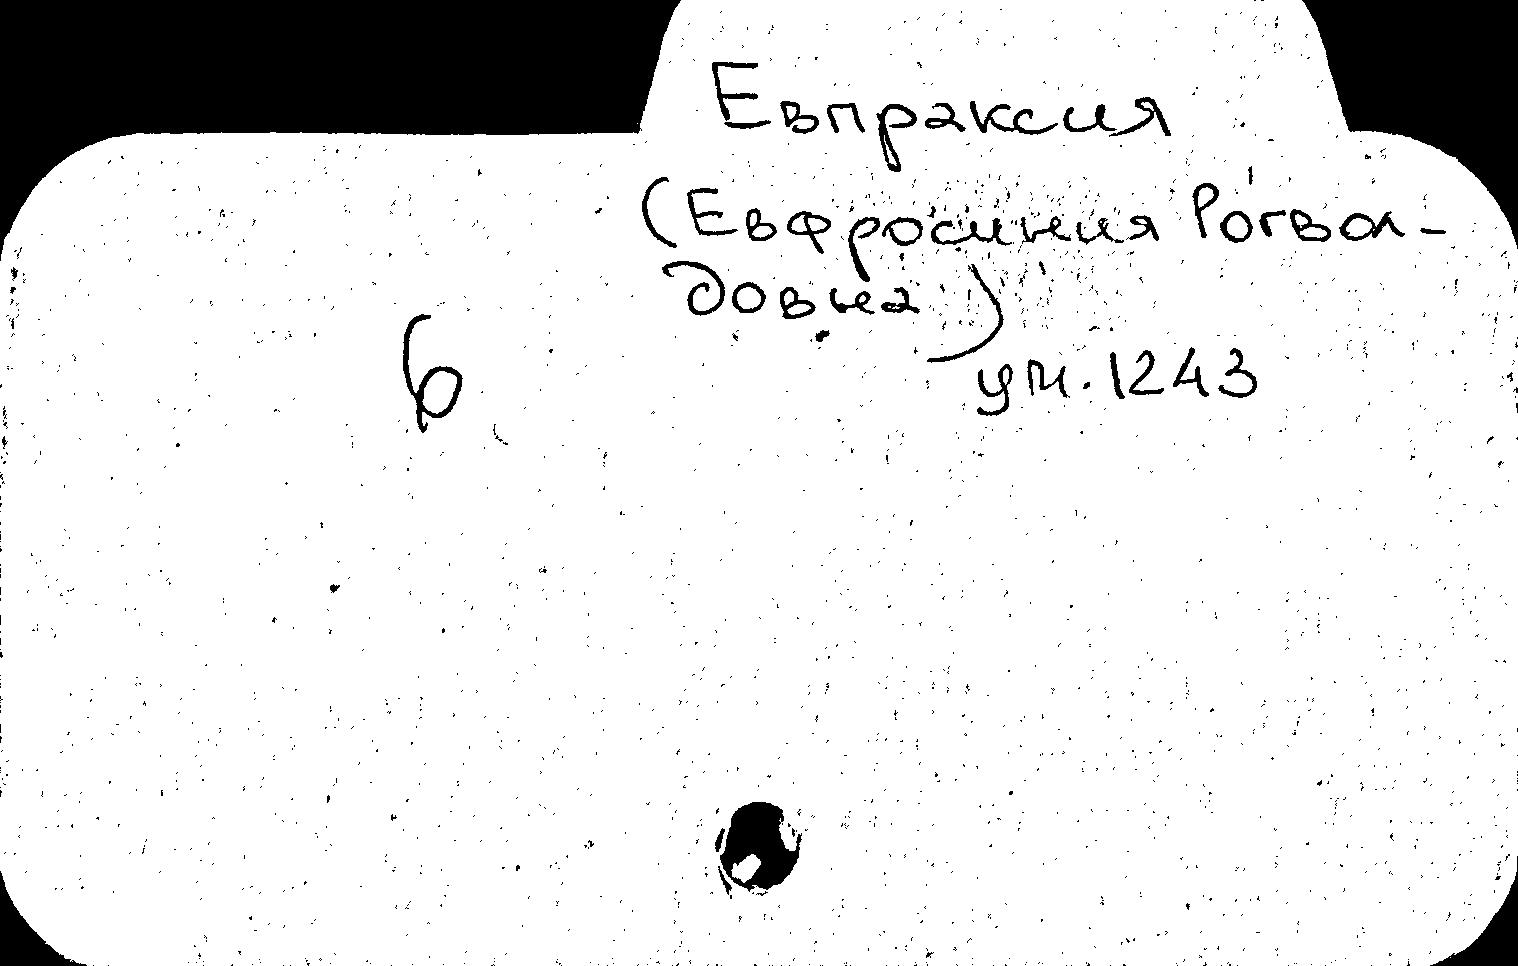 Евпраксия
(Евфросиния Рогвол-
довна)
6
ум. 1243